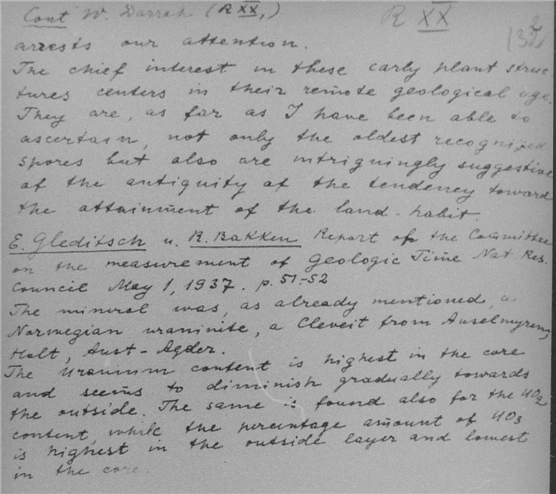 Cont W. Darrah (R XX,)
R XX
arrests our attention.
The chief interest in these early plant struc
tures centers in their remote geological age
They are, as far as I have been able to
ascertain, not only the oldest recognized
spores but also are intriguingly suggestive
of the antiquity of the tendency toward
the attainment of the land-habit.
E. Gleditsch u. R. Bakken Report of the Committee
on the measurement of Geologic Time Nat Res.
Council May 1, 1937. p. 51-52
The mineral was, as already mentioned, a
Norwegian uraninite, a Cleveit from Auselmyren,
Holt, Aust-Agder.
The Uranium content is highest in the core
and seems to diminish gradually towards
the outside. The same is found also for the UO2
content, while the percentage amount of UO3
is highest in the outside layer and lowest
in the core.